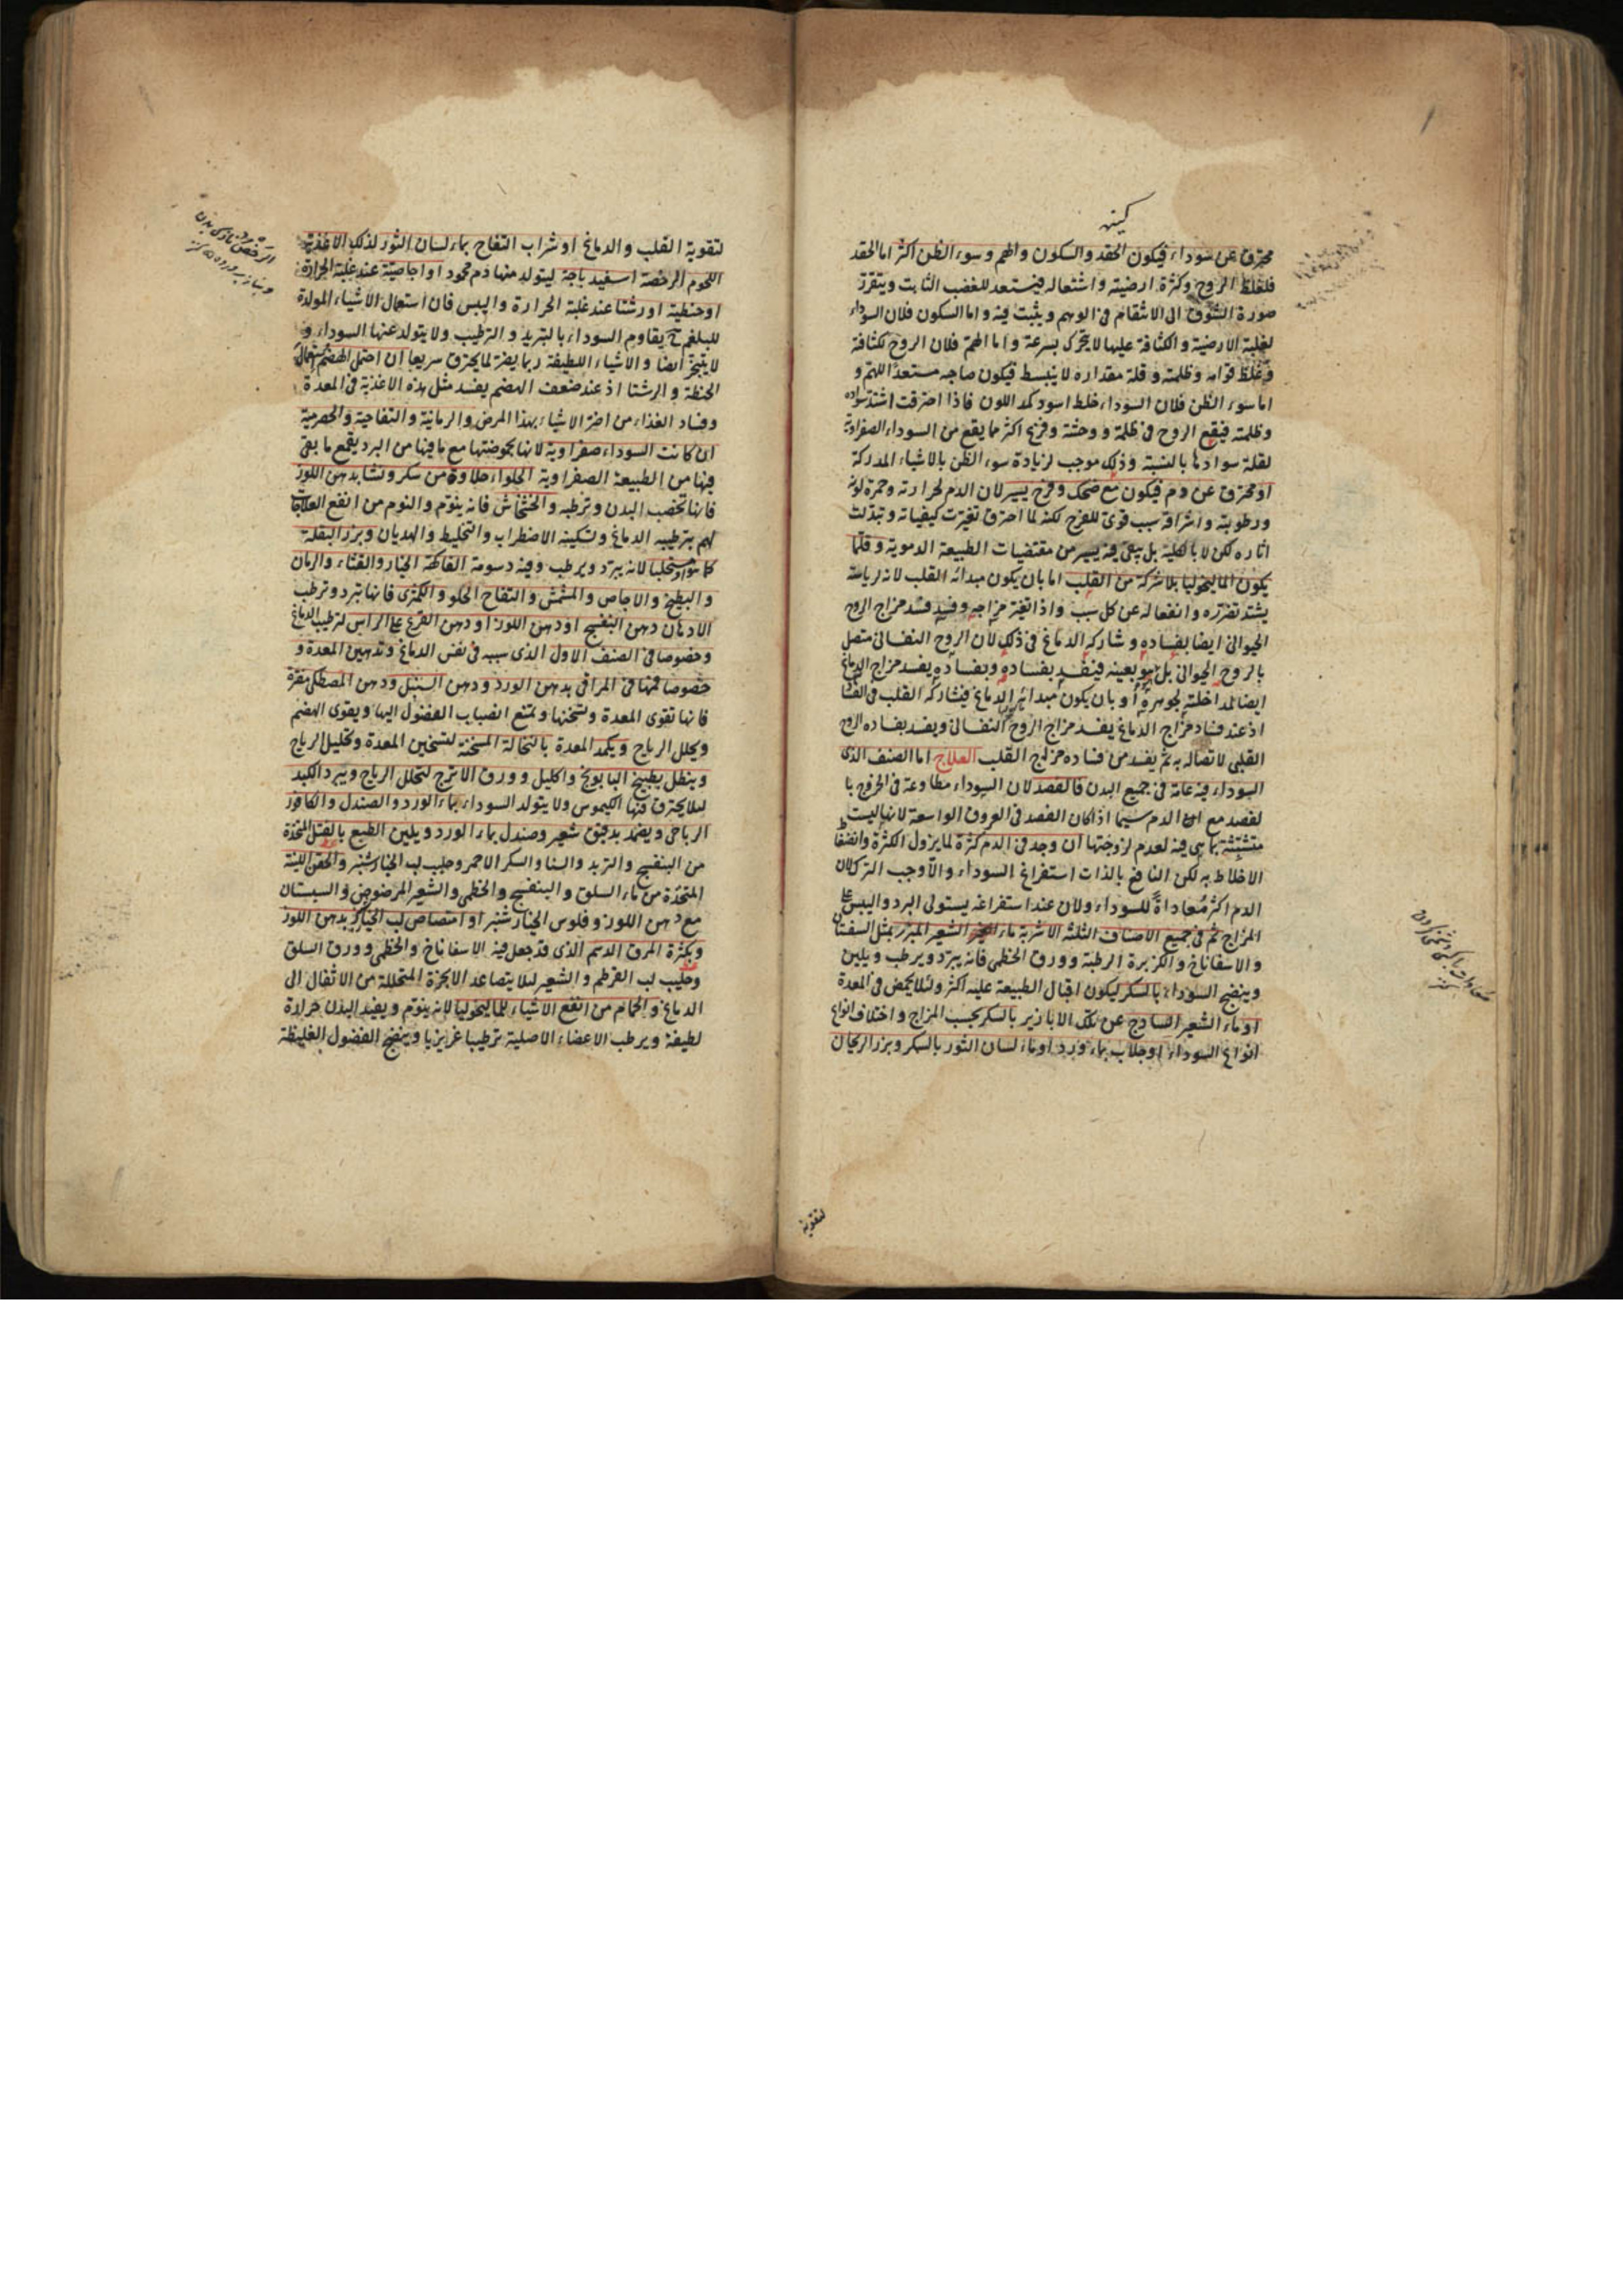 كينه
محترق عن سوداء فيكون الحقد والسكون والهم وسوء الظن اكثر اما الحقد
فلغلظ الروح وكثرة ارضيته واشتعاله فيستعد للغضب الثابت ويتقرر
صورة الشوق الى الانتقام فى الوهم ويثبت فيه واما السكون فلان السوداء
لغلبة الارضية والكثافة عليها لا يتحرك بسرعة واما الهم فلان الروح لكثافة
وغلظ قوامه وظلمته وقلة مقداره لا ينبسط فيكون صاحبه مستعدا للهم و
اما سوء الظن فلان السوداء خلط اسود كمد اللون فاذا احترقت اشتد سواده
وظلمته فيقع الروح فى ظلمة ووحشة وفزع اكثر مما يقع من السوداء الصفراوية
لقلة سوادها بالنسبة وذلك موجب لزيادة سوء الظن بالاشياء المدركة
او محترق عن دم فيكون مع ضحك وفرح يسير لان الدم لحرارته وحمرة لونه
ورطوبته واشراقه سبب قوى للفرح لكنه لما احترق تغيرت كيفياته وتبدلت
اثاره لكن لا بالكلية بل يبقى فيه يسير من مقتضيات الطبيعة الدموية وقلما
يكون الماليخوليا بلا شركة من القلب اما بان يكون مبدائه القلب لانه لرياسته
يشتد تضرره وانفعاله عن كل سبب واذا تغير مزاجه وفسد فسد مزاج الروح
الحيوانى ايضا بفساده وشاركه الدماغ فى ذلك لان الروح النفسانى متصل
بالروح الحيوانى بل هو بعينه فيفسد بفساده وبفساده يفسد مزاج الدماغ
ايضا لمداخلته لجوهره او بان يكون مبدائه الدماغ فيشاركه القلب فى الفساد
اذ عند فساد مزاج الدماغ يفسد مزاج الروح النفسانى ويفسد بفساده الروح
القلبى لاتصاله به ثم يفسد من فساده مزاج القلب العلاج اما الصنف الذى
السوداء فيه عامة فى جميع البدن فالفصد لان السوداء مطاوعة فى الخروج با
لفصد مع الدم سيما اذا كان الفصد فى العروق الواسعة لانها ليست
متشبثة بما هى فيه لعدم لزوجتها ان وجد فى الدم كثرة لما يزول الكثرة وانضغاط
الاخلاط به لكن النافع بالذات استفراغ السوداء والا وجب الترك لان
الدم اكثر معاداة للسوداء ولان عند استفراغه يستولى البرد واليبس على
المزاج ثم فى جميع الاصناف الثلثة الاشربة ماء الشعير المبزر بمثل السفتان
والاسفاناخ والكزبرة الرطبة وورق الخطمى فانه يبرد ويرطب ويلين
وينضج السوداء بالسكر ليكون اقبال الطبيعة عليه اكثر ولئلا يحمض فى المعدة
او ماء الشعير الساذج عن تلك الابازير بالسكر بحسب المزاج واختلاف انواع
انواع السوداء او جلاب بماء ورد او ماء لسان الثور بالسكر وبزر الريحان
لتقوية
لتقوية القلب والدماغ او شراب التفاح بماء لسان الثور لذلك الاغذية
اللحوم الرخصة اسفيدباجة ليتولد منها دم محمود او اجاصية عند غلبة الحرارة
او حنطية او رشتا عند غلبة الحرارة واليبس فان استعمال الاشياء المولدة
للبلغم ح يقاوم السوداء بالتبريد والترطيب ولا يتولد عنها السوداء و
لا يتبخر ايضا والاشياء اللطيفة ربما يضره لما يحترق سريعا ان احتمل الهضم استعمال
الحنطة والرشتا اذ عند ضعف الهضم يفسد مثل هذه الاغذية فى المعدة
وفساد الغذاء من اضر الاشياء بهذا المرض والرمانية والتفاحية والحصرمية
ان كانت السوداء صفراوية لانها بحموضتها مع ما فيها من البرد يقمع ما بقى
فيها من الطبيعة الصفراوية الحلواء حلاوة من سكر ونشا بدهن اللوز
فانها تخصب البدن وترطبه والخشخاش فانه ينوم والنوم من انفع العلاجات
لهم بترطيبه الدماغ وتسكينه الاضطراب والتخليط والهذيان وبزر البقلة
كما هو او مستحلبا لانه يبرد ويرطب وفيه دسومة الفاكهة الخيار والقثاء والرمان
والبطيخ والاجاص والمشمش والتفاح الحلو والكمثرى فانها تبرد وترطب
الادهان دهن البنفسج او دهن اللوز او دهن القرع على الراس لترطيب الدماغ
وخصوصا فى الصنف الاول الذى سببه فى نفس الدماغ وتدهين المعدة و
خصوصا فمها فى المراقى بدهن الورد ودهن السنبل ودهن المصطكى مفترة
فانها تقوى المعدة وتسخنها وتمنع انصباب الفضول اليها ويقوى الهضم
ويحلل الرياح ويكمد المعدة بالنخالة المسخنة لتسخين المعدة وتحليل الرياح
وينطل بطبيخ البابونج واكليل وورق الاترج لتحلل الرياح ويبرد الكبد
لئلا يحترق فيها الكيموس ولا يتولد السوداء بماء الورد والصندل والكافور
الرباحى ويضمد بدقيق شعير وصندل بماء الورد ويلين الطبع بالفتل المتخذة
من البنفسج والتربد والسنا والسكر الاحمر وحليب لب الخيارشنبر والحقن اللينة
المتخذة من ماء السلق والبنفسج والخطمى والشعير المرضوض والسبستان
مع دهن اللوز وفلوس الخيارشنبر او امتصاص لب الخيار بدهن اللوز
وبكثرة المرق الدسم الذى قد جعل فيه الاسفاناخ والخطمى وورق السلق
وحليب لب القرطم والشعير لئلا يتصاعد الابخرة المتحللة من الاثفال الى
الدماغ والحمام من انفع الاشياء للماليخوليا لانه ينوم ويفيد البدن حرارة
لطيفة ويرطب الاعضاء الاصلية ترطيبا غريزيا وينضج الفضول الغليظة